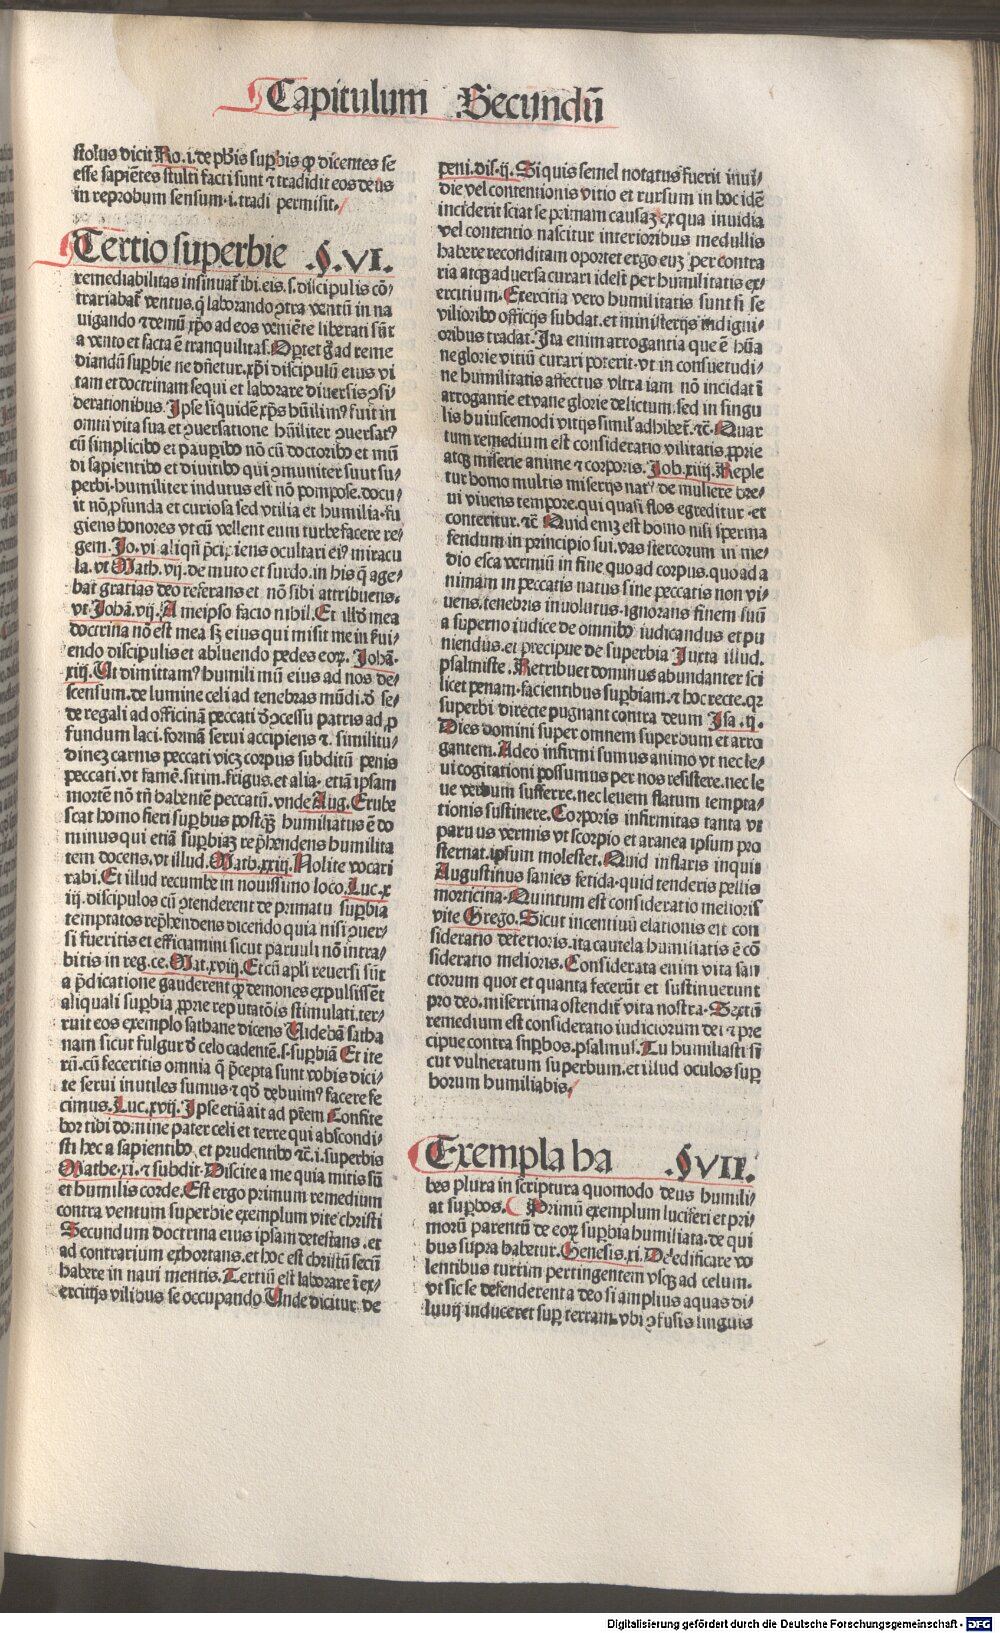 Capitulum Secundū
stolus dicit Ro.i. de ph̄is supbis qͥ dicentes se
esse sapiētes stulti facti sunt ⁊ tradidit eos deus
in reprobum sensum.i. tradi permisit.
Tertio superbie .§.VI.
remediabilitas insinuat̄ ibi. eis.s. discipulis cō/
trariabat̄ ventus. q̄ laborando ꝯtra ventū in na
uigando ⁊ demū xp̄o ad eos veniēte liberati sūt
a vento et facta ē tranquilitas. Oportet gͦ ad reme
diandū supbie ne dn̄etur. xp̄i discipulū eius vi
tam et doctrinam sequi et laborare diuersis ꝯsi/
derationibus. Ipse siquidē xp̄s hūilimꝰ fuit in
omni vita sua et ꝯuersatione hūiliter ꝯuersatꝰ
cū simplicibꝰ et pauperibꝰ nō cū doctoribꝰ et mū
di sapientibꝰ et diuitibꝰ qui ꝯmuniter sunt su/
perbi. humiliter indutus est nō pompose. docu/
it nō ꝓfunda et curiosa sed vtilia et humilia. fu
giens honores vt cū vellent eum turbe facere re/
gem. Jo.vi aliqn̄ p̄cipiens ocultari eiꝰ miracu
la. vt Math.vij. de muto et surdo. in his q̄ age/
bat gratias deo referans et nō sibi attribuens.
vt Johā.vij. A meipso facio nihil. Et illud mea
doctrina nō est mea sꝫ eius qui misit me in ẜui/
endo discipulis et abluendo pedes eoꝝ. Johā.
xiij. Ut dimittamꝰ humili mū eius ad nos de/
scensum. de lumine celi ad tenebras mūdi. de se/
de regali ad officinā peccati de ꝯcessu patris ad ꝓ
fundum laci. formā serui accipiens ⁊. similitu/
dinez carnis peccati vicꝫ corpus subditū penis
peccati. vt famē. sitim. frigus. et alia. etiā ipsam
mortē nō tn̄ habentē peccatū. vnde Aug. Erube
scat homo fieri supbus postꝙ humiliatus ē do
minus qui etiā supbiaꝫ rep̄hendens humilita
tem docens. vt illud. Math.xxiij. Nolite vocari
rabi. Et illud recumbe in nouissimo loco. Luc.x
iij. discipulos cū ꝯtenderent de primatu supbia
temptatos rep̄hendens dicendo quia nisi ꝯuer/
si fueritis et efficiamini sicut paruuli nō intra/
bitis in reg.ce. Mat.xviij. Et cū apl̄i reuersi sūt
a p̄dicatione gauderent ꝙ demones expulsissēt
aliquali supbia ꝓprie reputatōis stimulati. ter/
ruit eos exemplo sathane dicens Uidebā satha
nam sicut fulgur de celo cadentē. s. supbiā Et ite
rū. cū feceritis omnia q̄ p̄cepta sunt vobis dici/
te serui inutiles sumus ⁊ qd̄ debuimꝰ facere fe
cimus. Luc.xvij. Ipse etiā ait ad pr̄em Confite
bor tibi domine pater celi et terre qui abscondi/
sti hec a sapientibꝰ et prudentibꝰ ⁊c̄. i. superbis
Mathe.xi. ⁊ subdit. Discite a me quia mitis sū
et humilis corde. Est ergo primum remedium
contra ventum superbie exemplum vite christi
Secundum doctrina eius ipsam detestans. et
ad contrarium exhortans. et hoc est christū secū
habere in naui mentis. Tertiū est laborare ī ex/
ercitijs vilibus se occupando Unde dicitur de
peni.dis.ij. Si quis semel notatus fuerit inui/
die vel contentionis vitio et rursum in hoc idē
inciderit sciat se primam causaꝫ ex qua inuidia
vel contentio nascitur interioribus medullis
habere reconditam oportet ergo euꝫ per contra
ria atqꝫ aduersa curari idest per humilitatis ex/
ercitium. Exercitia vero humilitatis sunt si se
vilioribꝰ officijs subdat. et ministerijs indigni/
oribus tradat. Ita enim arrogantia que ē hūa
ne glorie vitiū curari poterit. vt in consuetudi/
ne humilitatis affectus vltra iam nō incidat ī
arrogantie et vane glorie delictum. sed in singu
lis huiuscemodi vitijs simil adhibet̄. ⁊c̄. Quar
tum remedium est consideratio vilitatis ꝓprie
atqꝫ miserie anime ⁊ corporis. Job.xiiij. Reple
tur homo multis miserijs natꝰ de muliere bre/
ui viuens tempore. qui quasi flos egreditur. et
conteritur. ⁊c̄ Quid eniꝫ est homo nisi sperma
fetidum in principio sui. vas stercorum in me/
dio esca vermiū in fine quo ad corpus. quo ad a
nimam in peccatis natus sine peccatis non vi/
uens. tenebris inuolutus. ignorans finem suū
a superno iudice de omnibꝰ iudicandus et pu
niendus. et precipue de superbia Iuxta illud.
psalmiste. Retribuet dominus abundanter sci
licet penam. facientibus supbiam. ⁊ hoc recte. qꝛ
superbi directe pugnant contra deum Isa.ij.
Dies domini super omnem superbum et arro
gantem. Adeo infirmi sumus animo vt nec le/
ui cogitationi possumus per nos resistere. nec le
ue verbum sufferre. nec leuem flatum tempta/
tionis sustinere. Corporis infirmitas tanta vt
paruus vermis vt scorpio et aranea ipsum pro
sternat. ipsum molestet. Quid inflaris inquit
Augustinus sanies fetida. quid tenderis pellis
morticina. Quintum est consideratio melioris
vite Grego. Sicut incentiuū elationis est con
sideratio deterioris. ita cautela humiliatis ē cō
sideratio melioris. Considerata enim vita san
ctorum quot et quanta fecerūt et sustinuerunt
pro deo. miserrima ostendit̄ vita nostra. Sextū
remedium est consideratio iudiciorum dei ⁊ pre
cipue contra supbos. psalmus. Tu humiliasti si
cut vulneratum superbum. et illud oculos sup
borum humiliabis.
Exempla ha .§VII.
bes plura in scriptura quomodo deus humili/
at supbos. Primū exemplum luciferi et pri/
morū parentū de eoꝝ supbia humiliata. de qui
bus supra habetur. Genesis.xi. De edificare vo
lentibus turrim pertingentem vsqꝫ ad celum.
vt sic se defenderent a deo si amplius aquas di/
luuij induceret sup terram. vbi ꝯfusis linguis
Digitalisierung gefördert durch die Deutsche Forschungsgemeinschaft - DFG